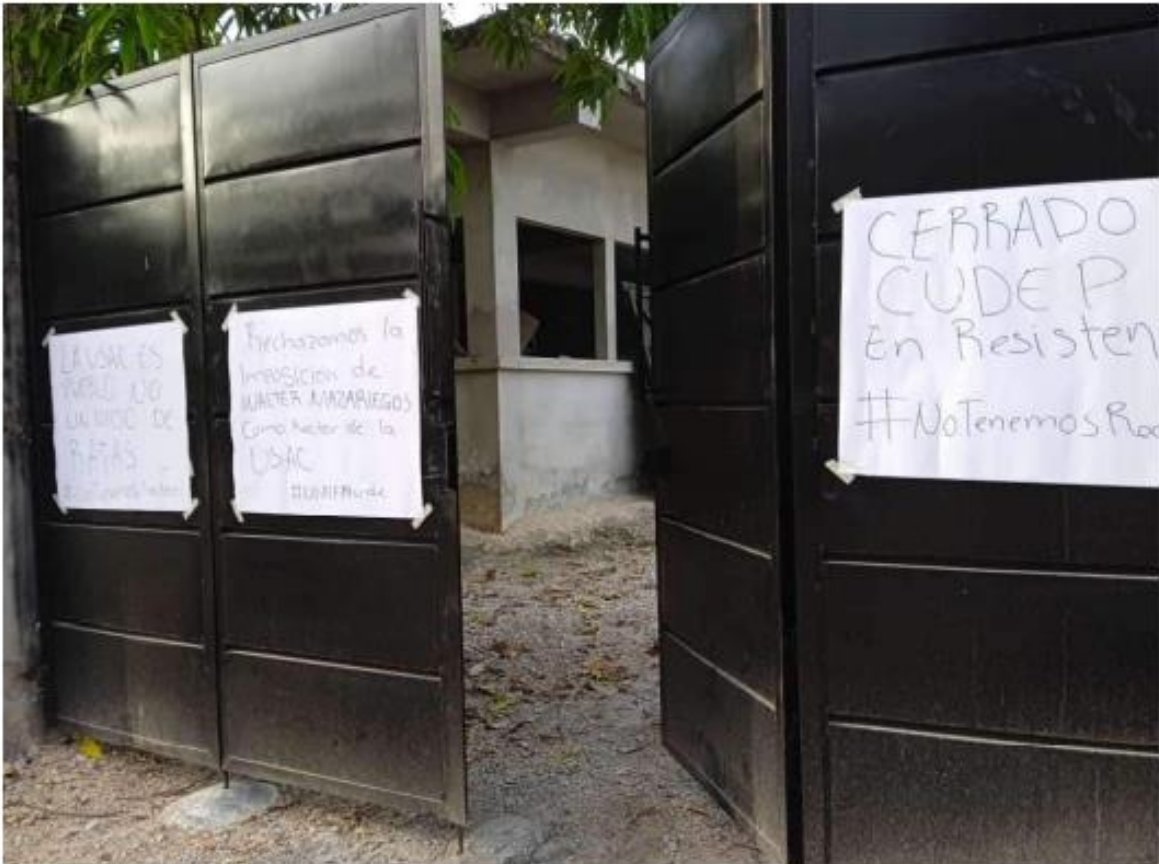 LA USAC ES
PUEBLO NO
UN NIDO DE
RATAS
Rechazamos la
Imposición de
WALTER MAZARIEGOS
Como Rector de la
USAC
CERRADO
CUDEP
En Resisten
#NoTenemosRec